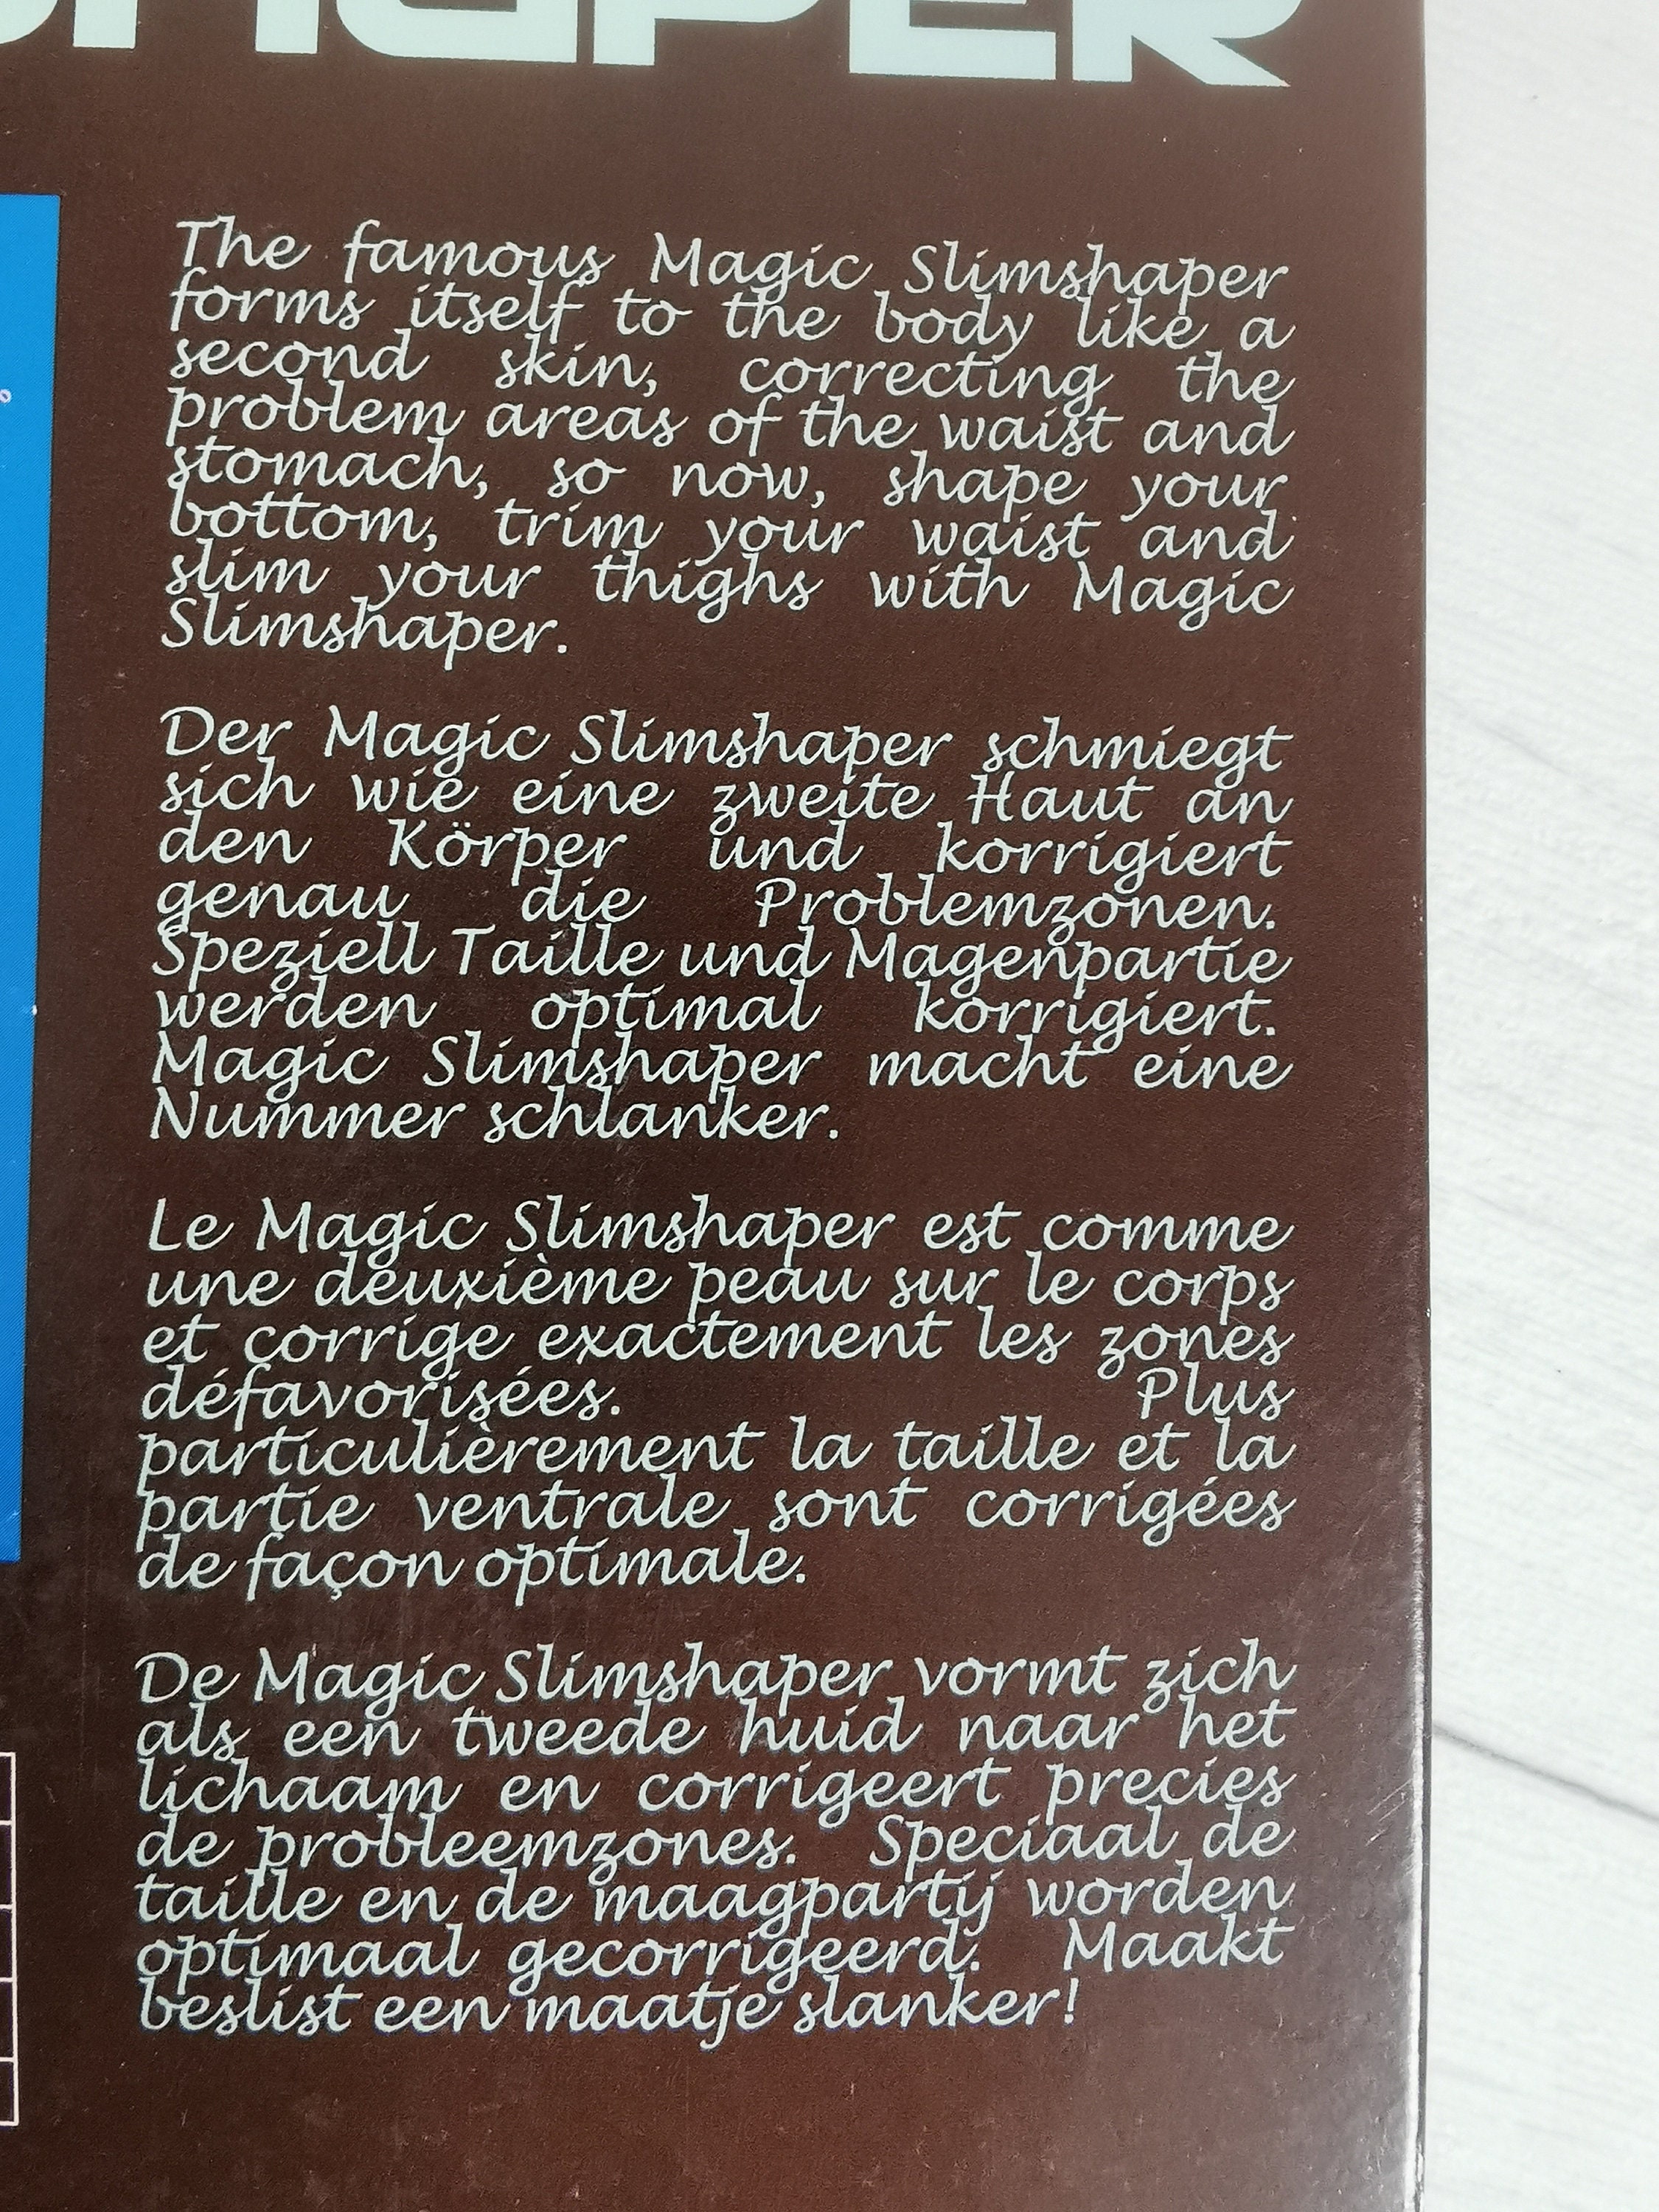 The famous Magic Slimshaper
forms itself to the body like a
second skin, correcting the
problem areas of the waist and
stomach, so now, shape your
bottom, trim your waist and
slim your thighs with Magic
Slimshaper.
Der Magic Slimshaper schmiegt
sich wie eine zweite Haut an
den Körper und korrigiert
genau die Problemzonen.
Speziell Taille und Magenpartie
werden optimal korrigiert.
Magic Slimshaper macht eine
Nummer schlanker.
Le Magic Slimshaper est comme
une deuxième peau sur le corps
et corrige exactement les zones
défavorisées. Plus
particulièrement la taille et la
partie ventrale sont corrigées
de façon optimale.
De Magic Slimshaper vormt zich
als een tweede huid naar het
lichaam en corrigeert precies
de probleemzones. Speciaal de
taille en de maagpartij worden
optimaal gecorrigeerd. Maakt
beslist een maatje slanker!